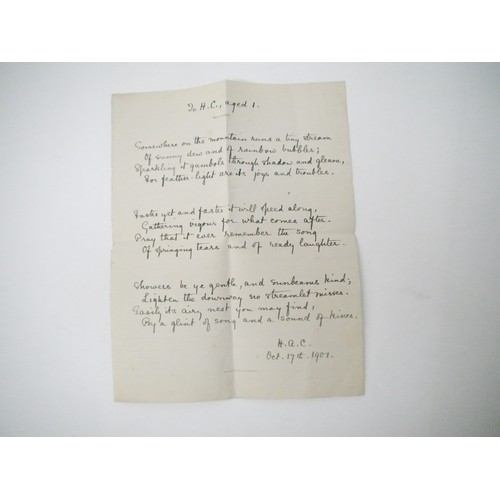 To H.C., aged 1.
Somewhere on the mountain runs a tiny stream
Of sunny dew and of rainbow bubbles;
Sparkling it gambols through shadow and gleam,
For feather-light are its joys and troubles.
Faster yet and faster it will speed along,
Gathering vigour for what comes after.
Pray that it ever remember the song
Of springing tears and of ready laughter.
Showers be ye gentle, and sunbeams kind;
Lighten the downway no streamlet misses.
Easily its airy nest you may find,
By a glint of song and a sound of kisses.
H.A.C.
Oct. 17th. 1901.